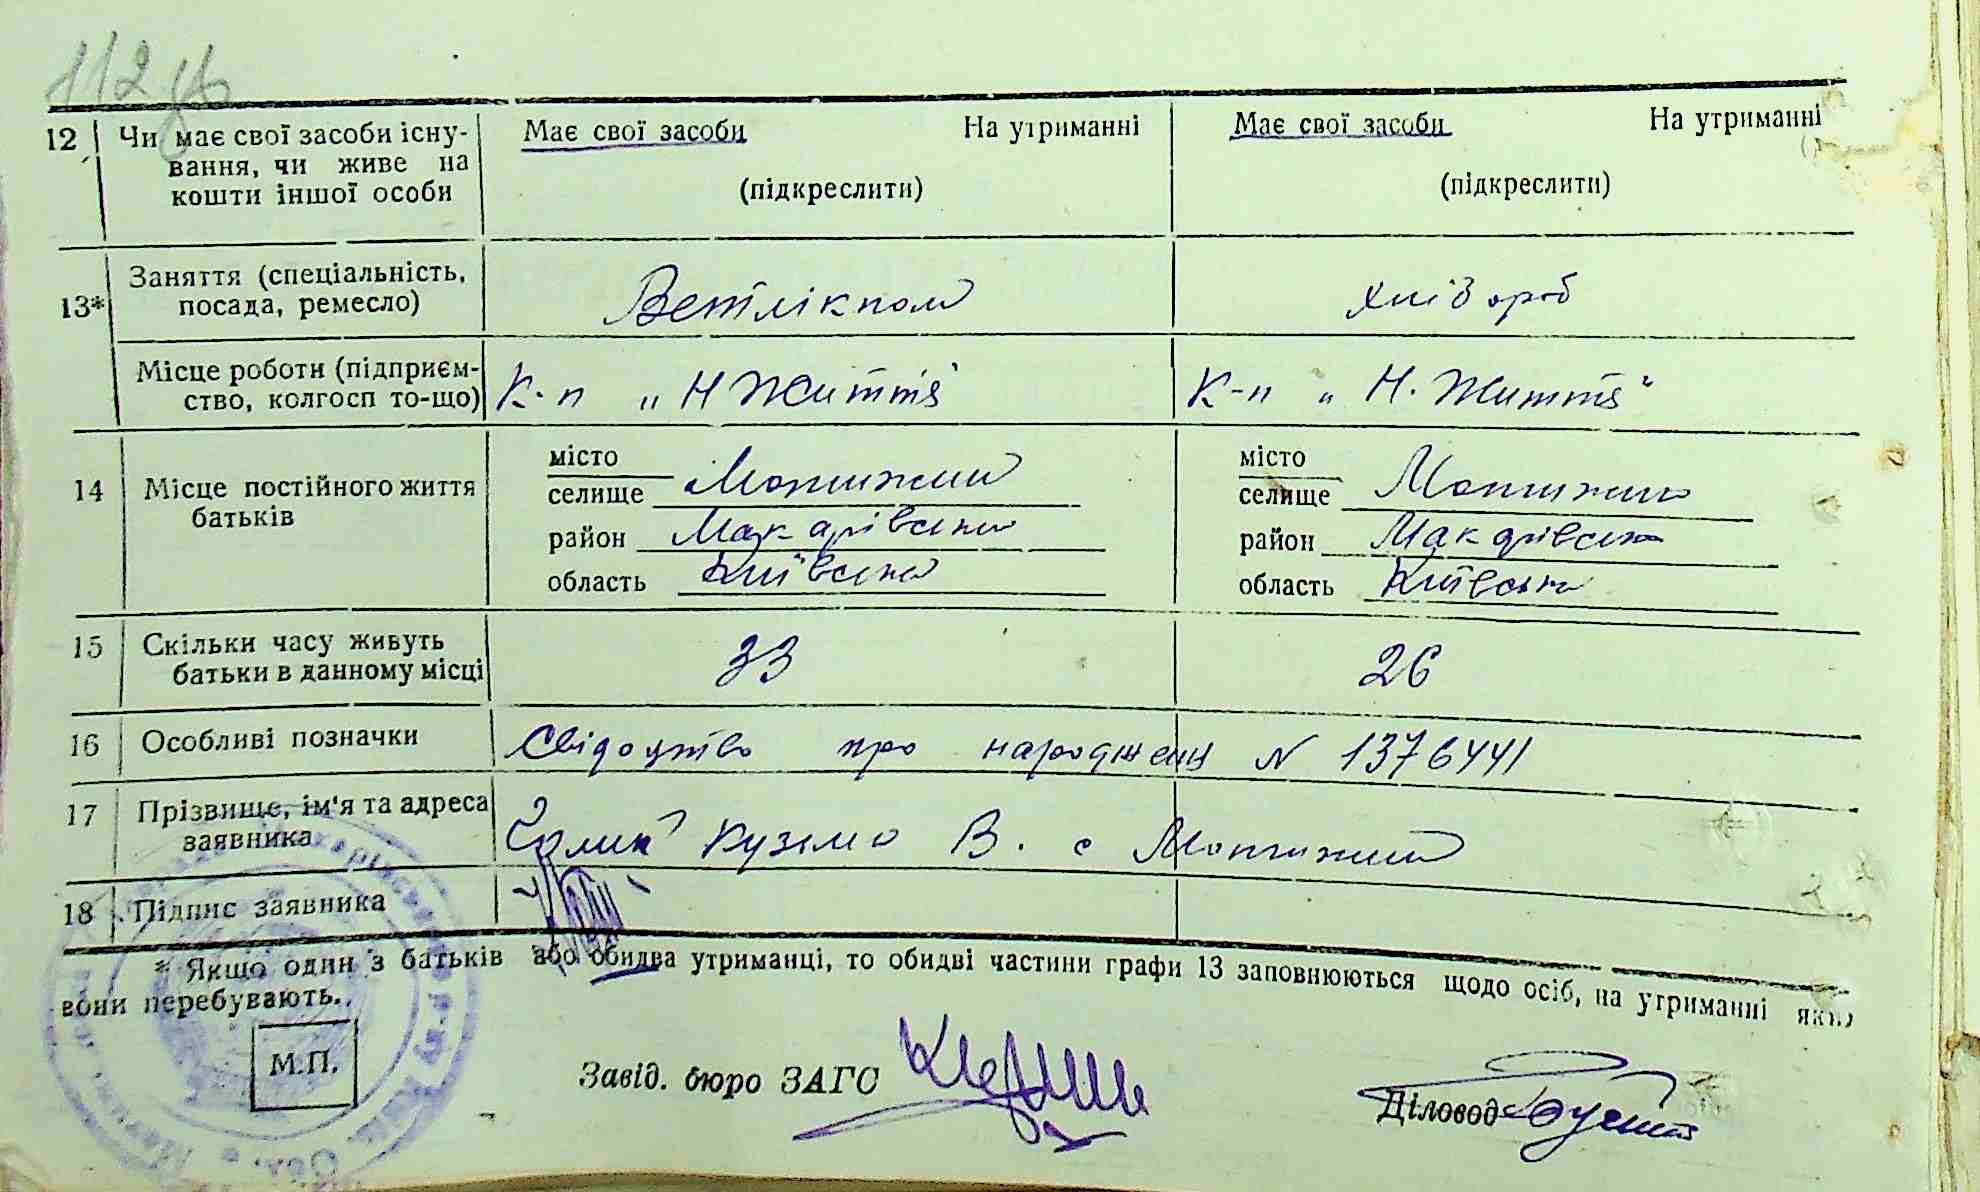 112 зв
12 Чи має свої засоби існу-
вання, чи живе на
кошти іншої особи
Має свої засоби На утриманні
(підкреслити)
Має свої засоби На утриманні
(підкреслити)
13* Заняття (спеціальність,
посада, ремесло)
Ветлікпом
хлібороб
Місце роботи (підприєм-
ство, колгосп то-що)
К-п „Н Життя"
К-п „Н. Життя"
14 Місце постійного життя
батьків
місто
селище Мотижин
район Макарівський
область Київська
місто
селище Мотижин
район Макарівський
область Київська
15 Скільки часу живуть
батьки в данному місці
33
26
16 Особливі позначки
Свідоцтво про народження N 1376441
17 Прізвище, ім'я та адреса
заявника
Кузьма В. с Мотижин
18 Підпис заявника
* Якщо один з батьків або обидва утриманці, то обидві частини графи 13 заповнюються щодо осіб, на утриманні яких
вони перебувають.
М.П.
Завід. бюро ЗАГС
Діловод